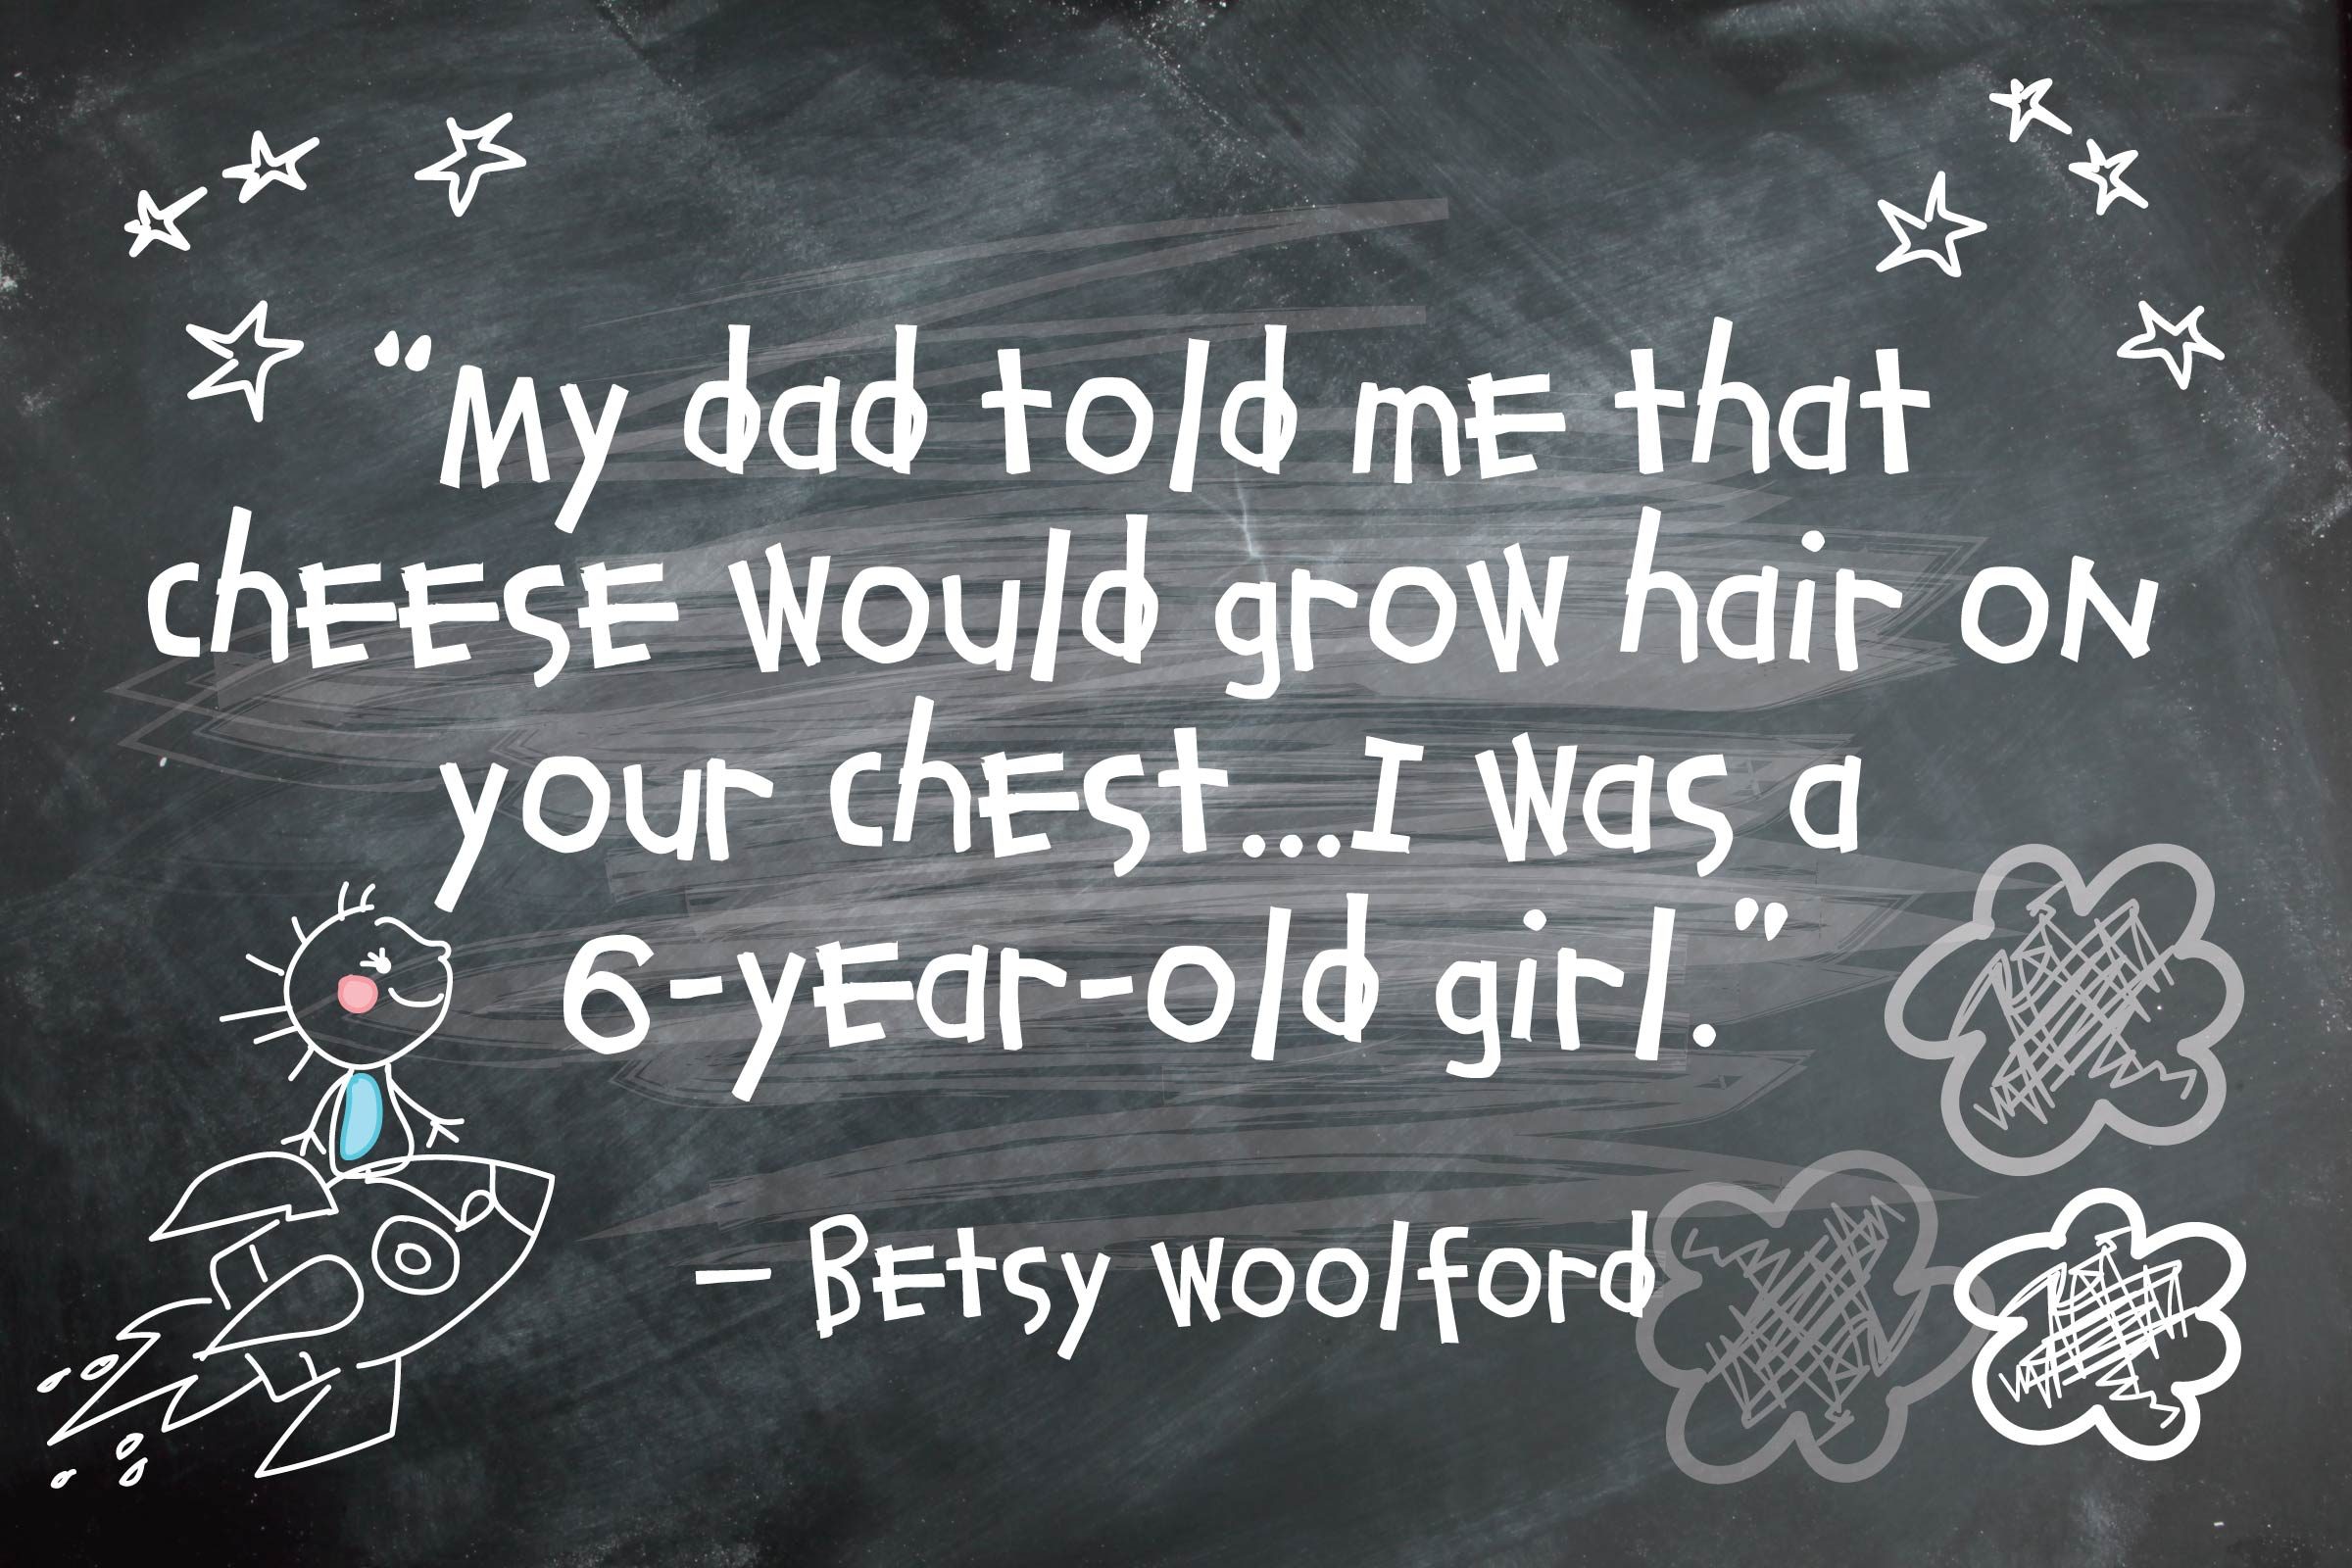 “My dad told me that
cheese would grow hair on
your chest...I was a
6-year-old girl.”
– Betsy Woolford